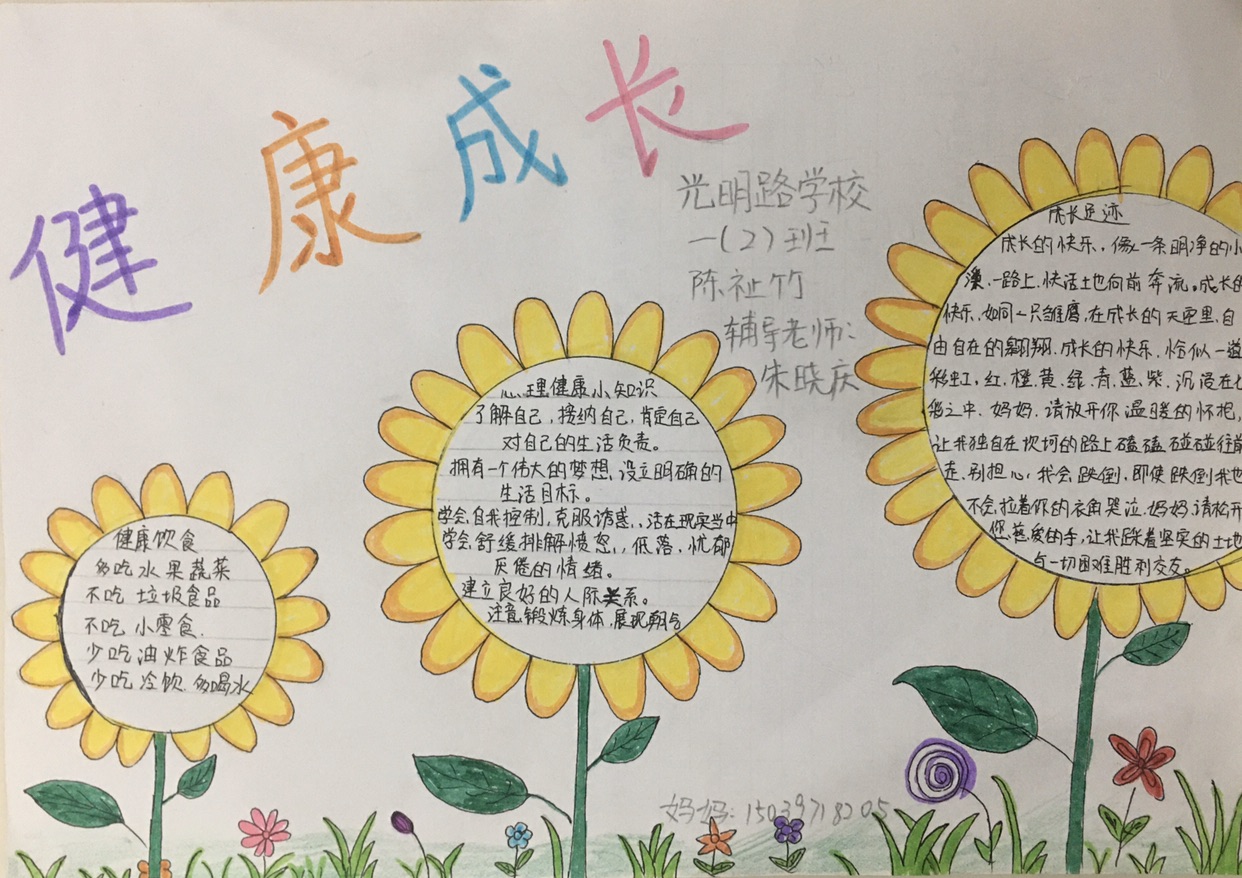 健康成长
光明路学校
一(2)班
陈祉竹
辅导老师:
朱晓庆
健康饮食
多吃水果蔬菜
不吃垃圾食品
不吃小零食.
少吃油炸食品
少吃冷饮.多喝水
心理健康小知识
了解自己,接纳自己,肯定自己
对自己的生活负责。
拥有一个伟大的梦想,设立明确的
生活目标。
学会自我控制,克服诱惑、,活在现实当中
学会舒缓排解愤怒,,低落、忧郁
厌倦的情绪。
建立良好的人际关系。
注意锻炼身体,展现朝气
成长足迹
成长的快乐,像一条明净的小
溪.一路上.快活土也向前奔流。成长的
快乐,如同一只雏鹰,在成长的天空里,自
由自在的翱翔.成长的快乐.恰似一道
彩虹,红.橙.黄.绿.青.蓝.紫.沉浸在
之中.妈妈.请放开你温暖的怀抱,
让我独自在坎坷的路上磕磕碰碰往前
走.别担心,我会跌倒,即使跌倒我也
不会,拉着你的衣角哭泣.妈妈,请松开
您慈爱的手,让我踩着坚实的土地
与一切困难胜利交友。
妈妈:15039718205